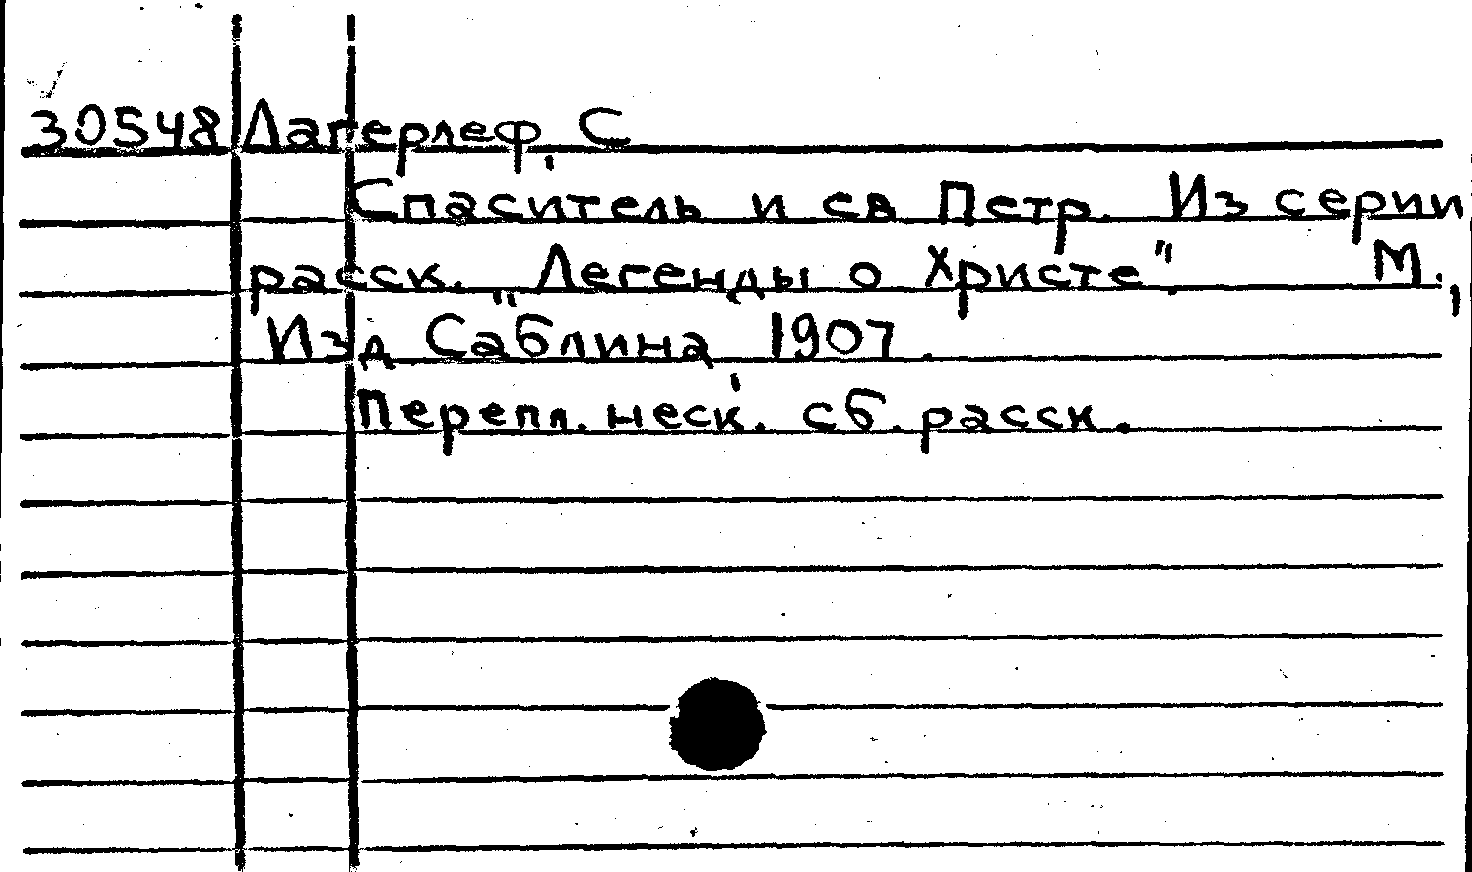 30548 Лагерлеф, С
Спаситель и св Петр. Из серии
расск. „Легенды о Христе". М.,
Изд Саблина, 1907.
Перепл. неск. сб. расск.